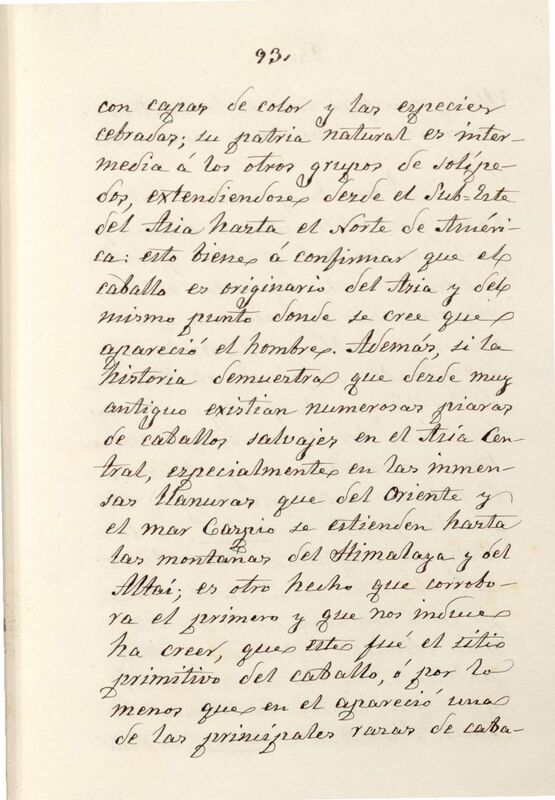 93.
con capas de color y las especies
cebradas; su patria natural es inter-
media á los otros grupos de solípe-
dos, extendiendose desde el Sub-Este
del Asia hasta el Norte de Améri-
ca: esto biene á confirmar que el
caballo es originario del Asia y del
mismo punto donde se cree que
apareció el hombre. Además, si la
historia demuestra que desde muy
antiguo existian numerosas piaras
de caballos salvajes en el Asia Cen-
tral, especialmente en las inmen-
sas llanuras que del Oriente y
el mar Caspio se estienden hasta
las montañas del Himalaya y del
Altaí; es otro hecho que corrobo-
ra el primero y que nos induce
ha creer, que este fué el sitio
primitivo del caballo, ó por lo
menos que en el apareció una
de las principales razas de caba-